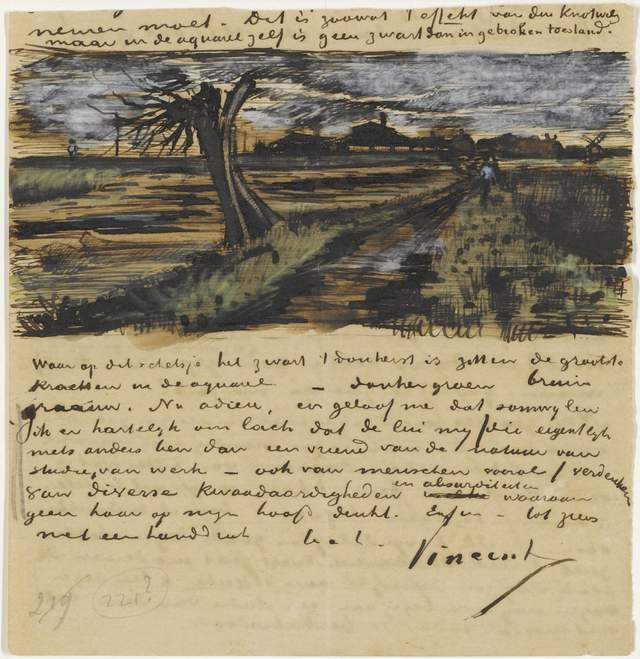 nemen moet. Dit is zoowat 't effekt van den Knotwilg
maar in de aquarel zelf is geen zwart dan in gebroken toestand.
Waar op dit schetsje het zwart 't donkerst is zitten de grootste
krachten in de aquarel – donkergroen bruin
graauw. Nu adieu, en geloof me dat somwylen
ik er hartelyk om lach dat de lui my / die eigentlyk
niets anders ben dan een vriend van de natuur van
studie, van werk – ook van menschen vooral / verdenken
van diverse kwaadaardigheden en absurditeiten waaraan
geen haar op myn hoofd denkt. Enfin – tot ziens
met een handdruk
Vincent
219 221?